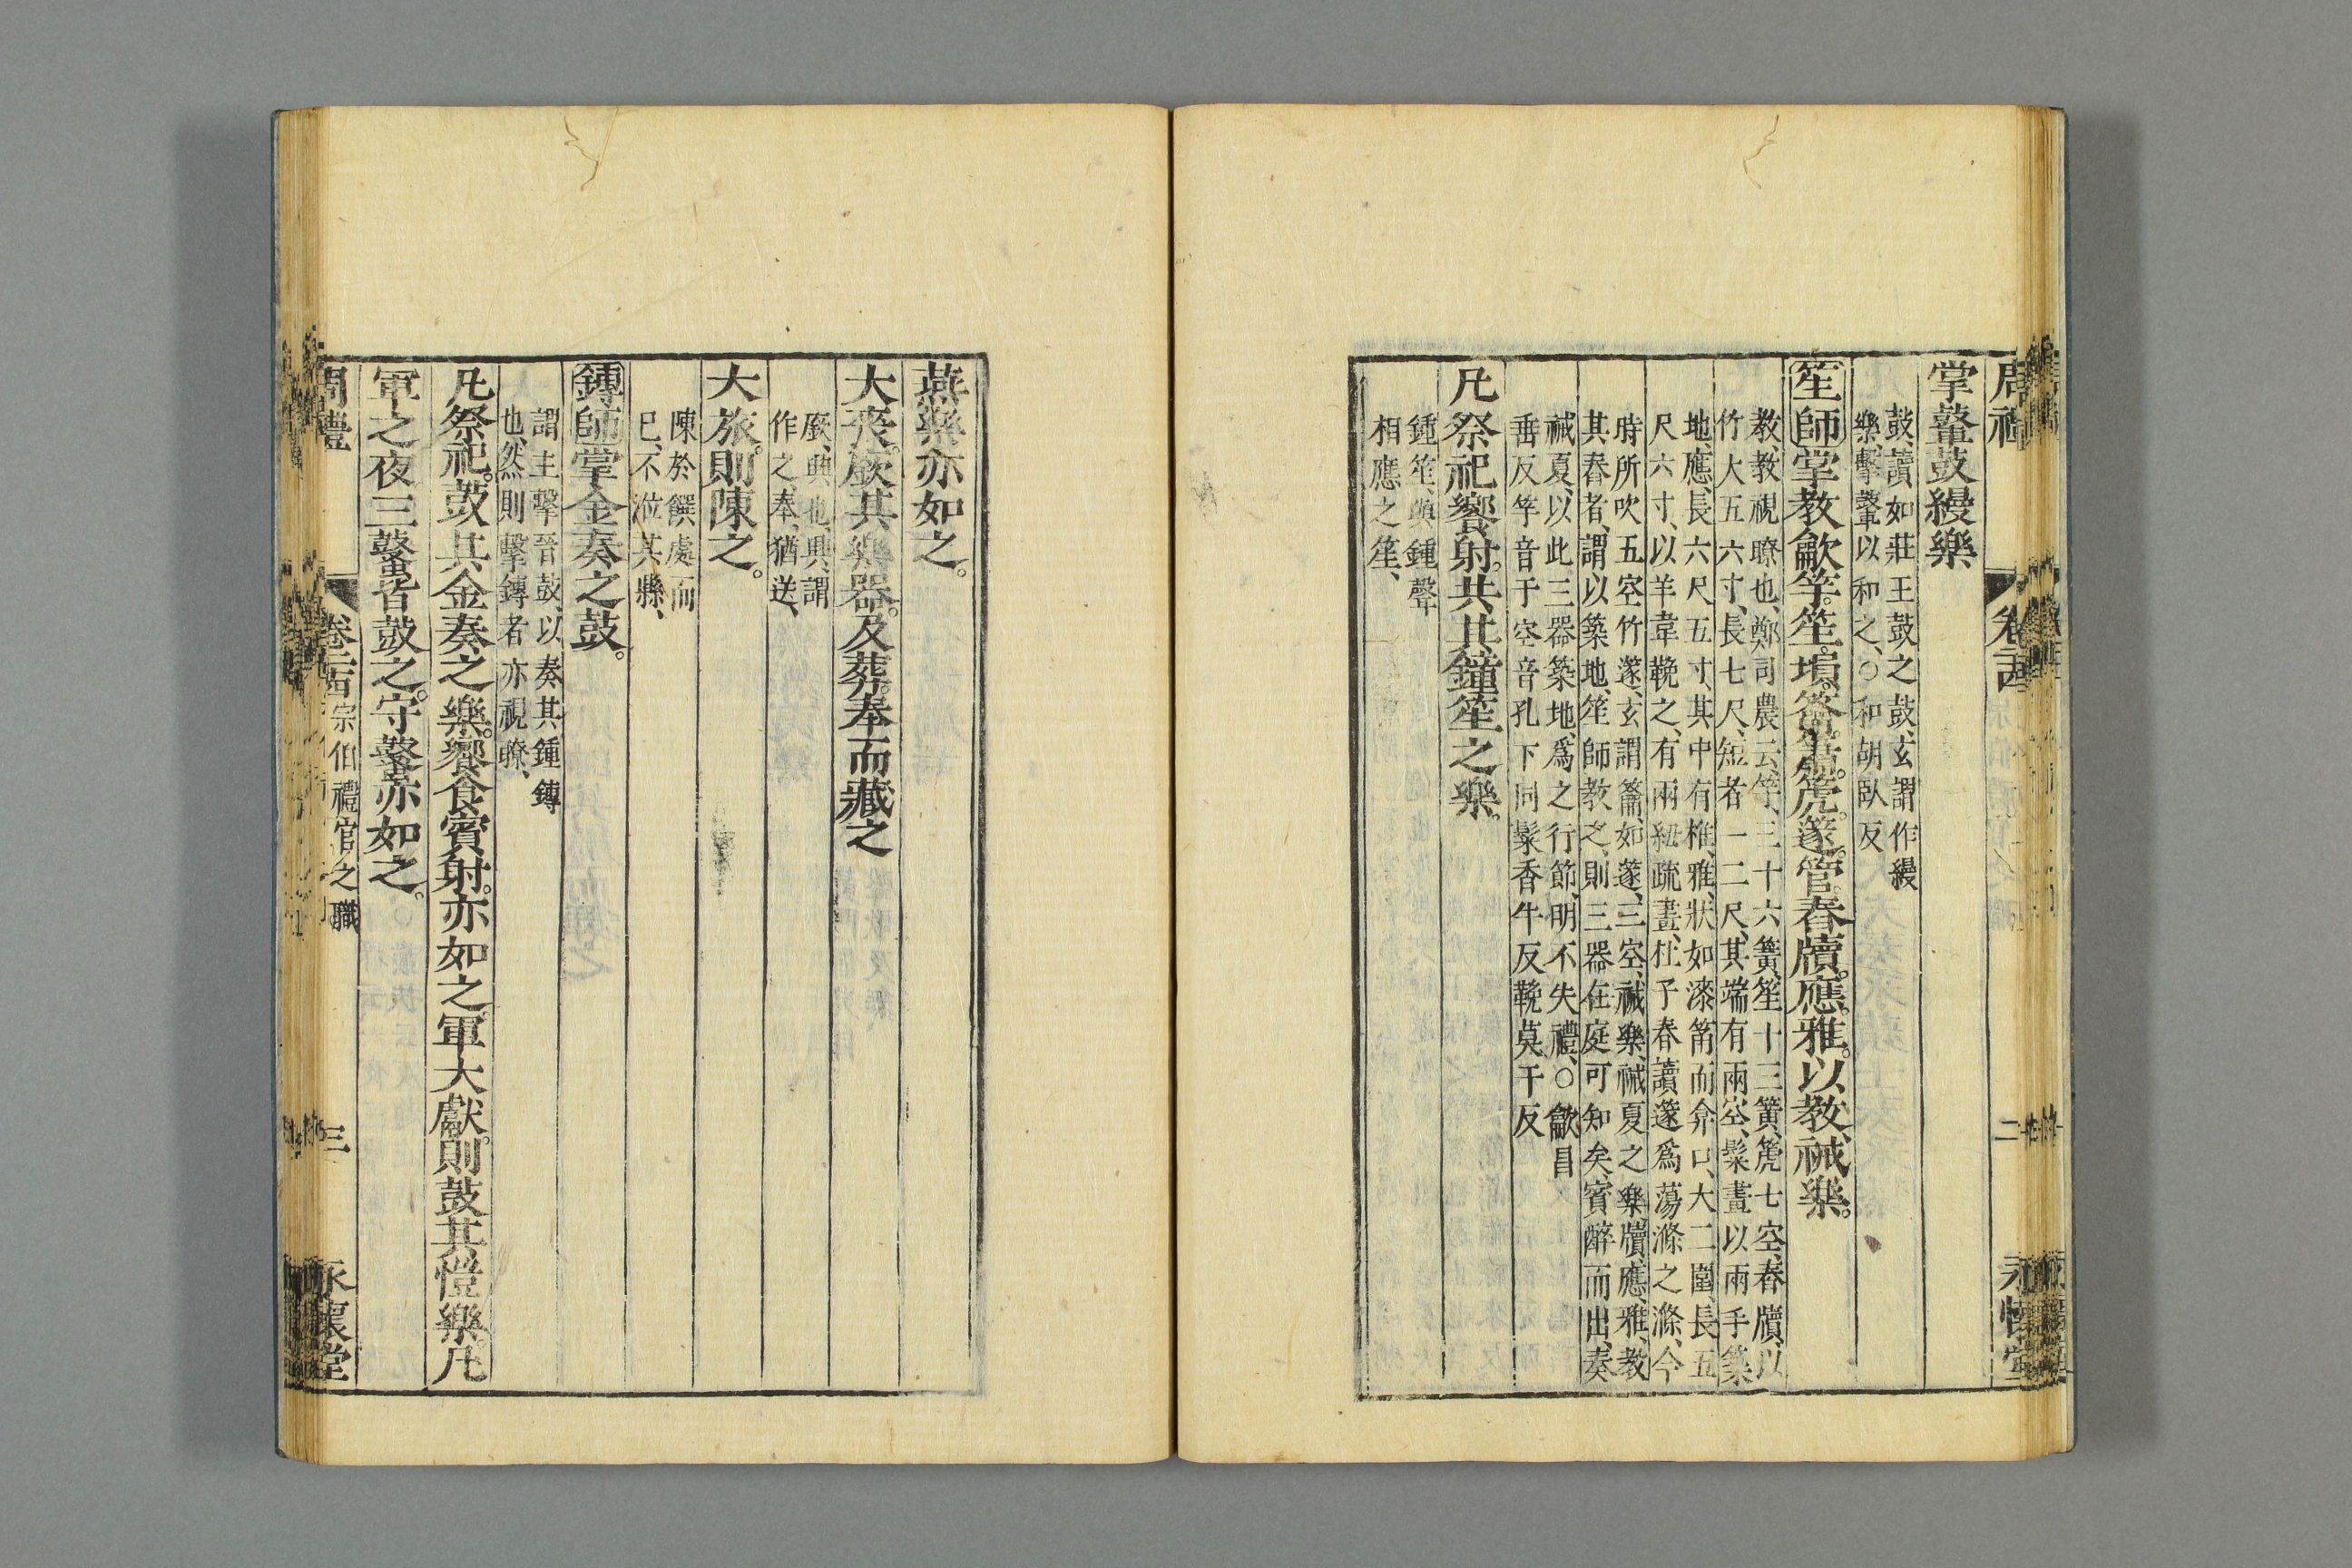 周禮 卷二十四 二 永懷堂
掌鼙鼓縵樂
鼓、讀如莊王鼓之鼓、玄謂作縵
樂、擊鼙以和之、○和胡臥反
笙師掌教龡竽。笙。塤。籥。簫。篪。篴。管。舂牘。應。雅。以教祴樂。
教、教視瞭也、鄭司農云、竽、三十六簧、笙十三簧、篪七空、舂牘、以
竹大五六寸、長七尺、短者一二尺、其端有兩空、髹畫以兩手築
地、應、長六尺五寸、其中有椎、雅、狀如漆筩而弇口、大二圍、長五
尺六寸、以羊韋鞔之、有兩紐疏畫、杜子春讀篴爲蕩滌之滌、今
時所吹五空竹篴、玄謂籥、如篴、三空、祴樂、祴夏之樂、牘、應、雅、教
其舂者、謂以築地、笙師教之、則三器在庭可知矣、賓醉而出、奏
祴夏、以此三器築地、爲之行節、明不失禮、○龡昌
垂反竽音于空音孔下同髹香牛反鞔莫干反
凡祭祀饗射。共其鐘笙之樂。
鍾笙、與鍾聲
相應之笙、
燕樂亦如之。
大喪。廞其樂器。及葬。奉而藏之
廞、興也、興、謂
作之、奉、猶送、
大旅。則陳之。
陳於饌處而
已、不涖其縣、
鎛師掌金奏之鼓。
謂主擊晉鼓、以奏其鍾鎛
也、然則擊鎛者亦視瞭、
凡祭祀。鼓其金奏之樂。饗食賓射。亦如之。軍大獻。則鼓其愷樂。凡
軍之夜三鼜皆鼓之。守鼜亦如之。
周禮 卷二十四 宗伯禮官之職 三 永懷堂